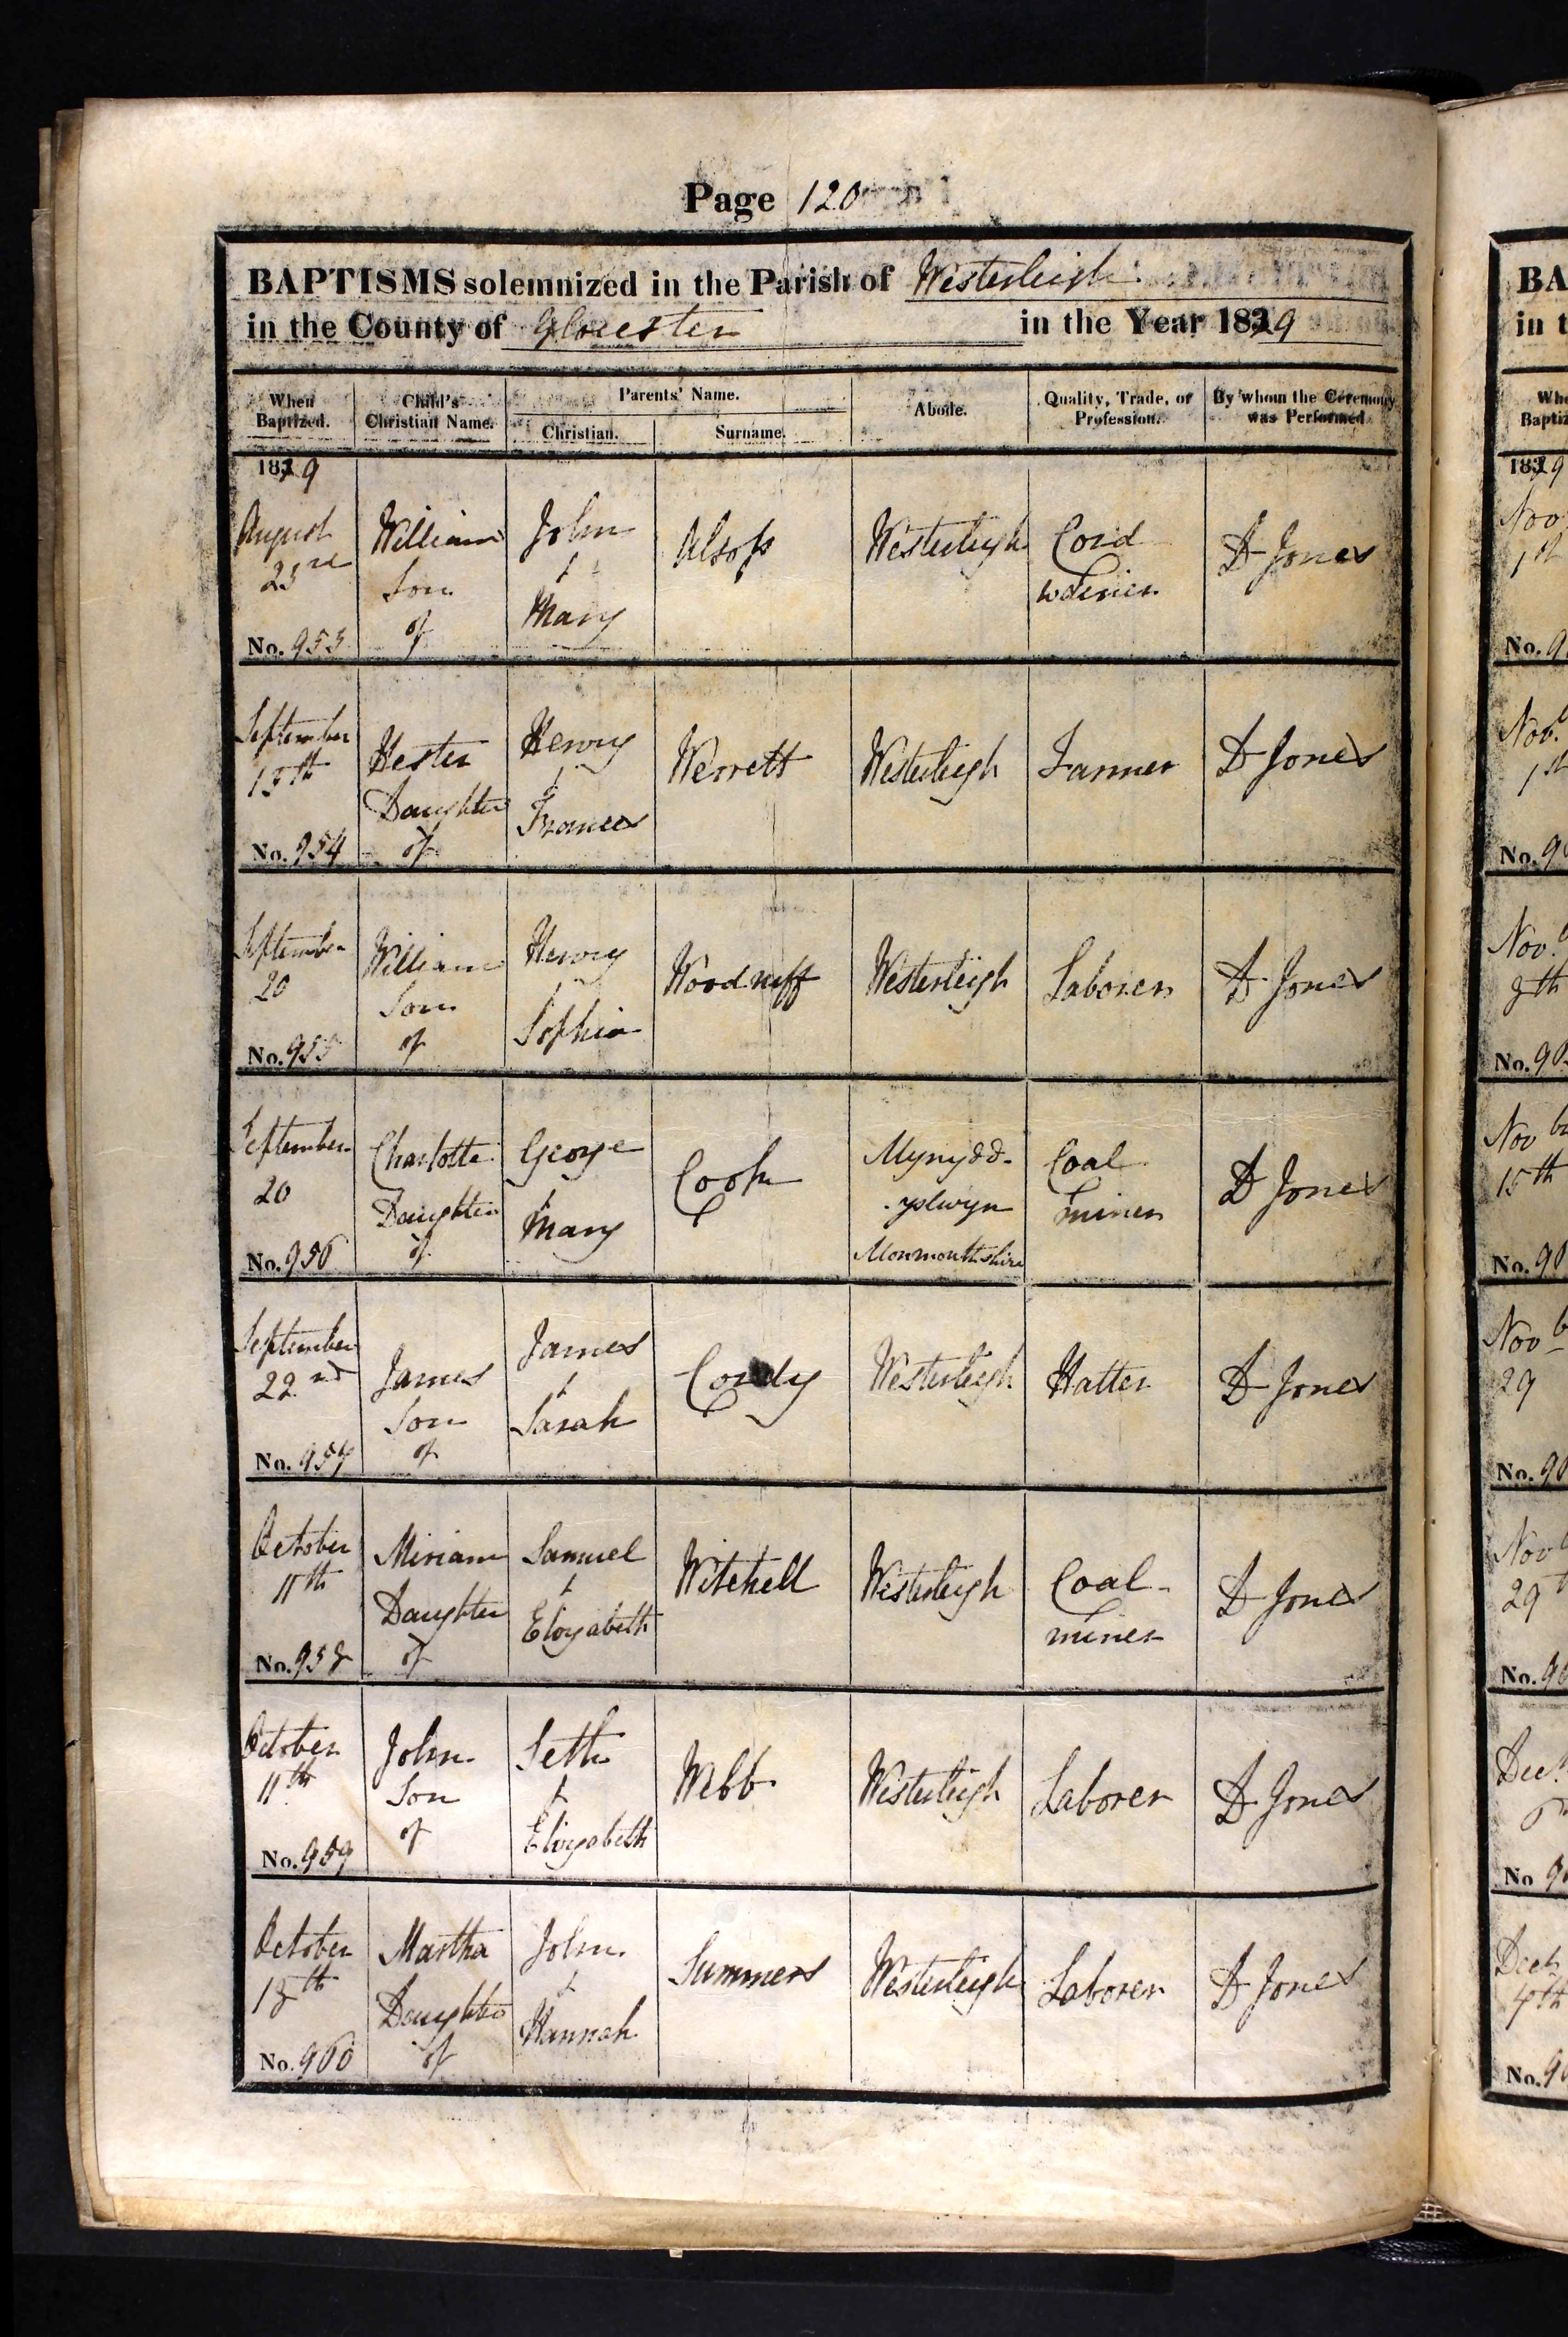 Page 120
BAPTISMS solemnized in the Parish of Westerleigh
in the County of Glocester in the Year 1829
When Baptized. Child's Christian Name. Parents' Name. Christian. Surname. Abode. Quality, Trade, or Profession. By whom the Ceremony was Performed
1829
August 23rd William Son of John & Mary Alsop Westerleigh Cordwainer D Jones
No. 953
September 13th Hester Daughter of Henry & Frances Werrett Westerleigh Farmer D Jones
No. 954
September 20 William Son of Henry Sophia Woodruff Westerleigh Laborer D Jones
No. 955
September 20 Charlotte Daughter of George & Mary Cook Mynydd-yslwyn Monmouthshire Coal miner D Jones
No. 956
September 22nd James Son of James & Sarah Cordy Westerleigh Hatter D Jones
No. 957
October 11th Miriam Daughter of Samuel & Elizabeth Witchell Westerleigh Coal-miner D Jones
No. 958
October 11th John Son of Seth & Elizabeth Webb Westerleigh Laborer D Jones
No. 959
October 18th Martha Daughter of John & Hannah Summers Westerleigh Laborer D Jones
No. 960
BA
in t
1829
Nov
1st
Nov.
1st
Nov.
8th
Nov
15th
Nov
29
Nov
29